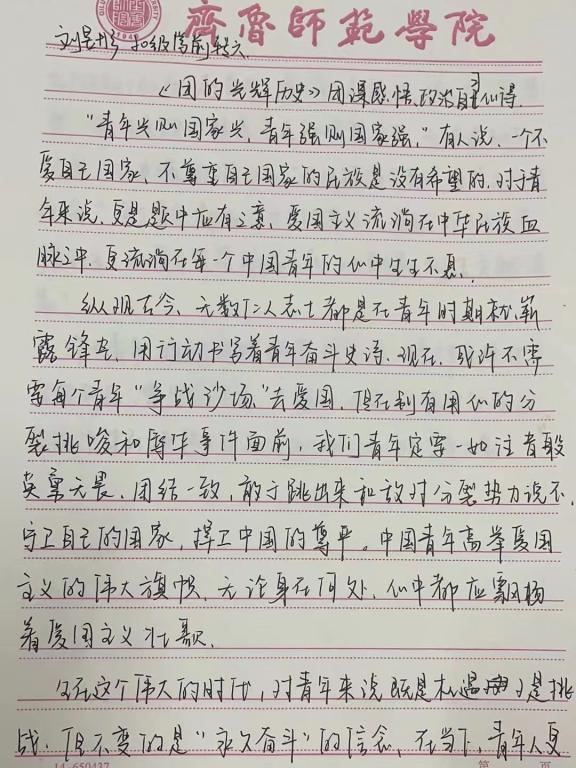 齊魯師範學院
1948
初级信前班六
《团的光辉历史》团课感悟、政治自习心得.
"青年兴则国家兴,青年强则国家强,"有人说,一个不
爱自己国家,不尊重自己国家的民族是没有希望的.对于青
年来说,更是题中应有之意、爱国主义流淌在中华民族血
脉之中,更流淌在每一个中国青年的心中生生不息.
纵观古今、无数仁人志士都是在青年时期就崭
露锋芒、用行动书写着青年奋斗史诗.现在,或许不需
要每个青年"争战沙场"去爱国,但在别有用心的分
裂挑唆和辱华事件面前,我们青年定要一如往昔般
英勇无畏、团结一致,敢于跳出来和敌对分裂势力说不,
守卫自己的国家,捍卫中国的尊严。中国青年高举爱国
主义的伟大旗帜、无论身在何处,心中都应飘扬
着爱国主义壮歌.
在这个伟大的时代,对青年来说既是机遇又是挑
战.但不变的是"永久奋斗"的信念,在当下,青年人更
14-650437 第 页